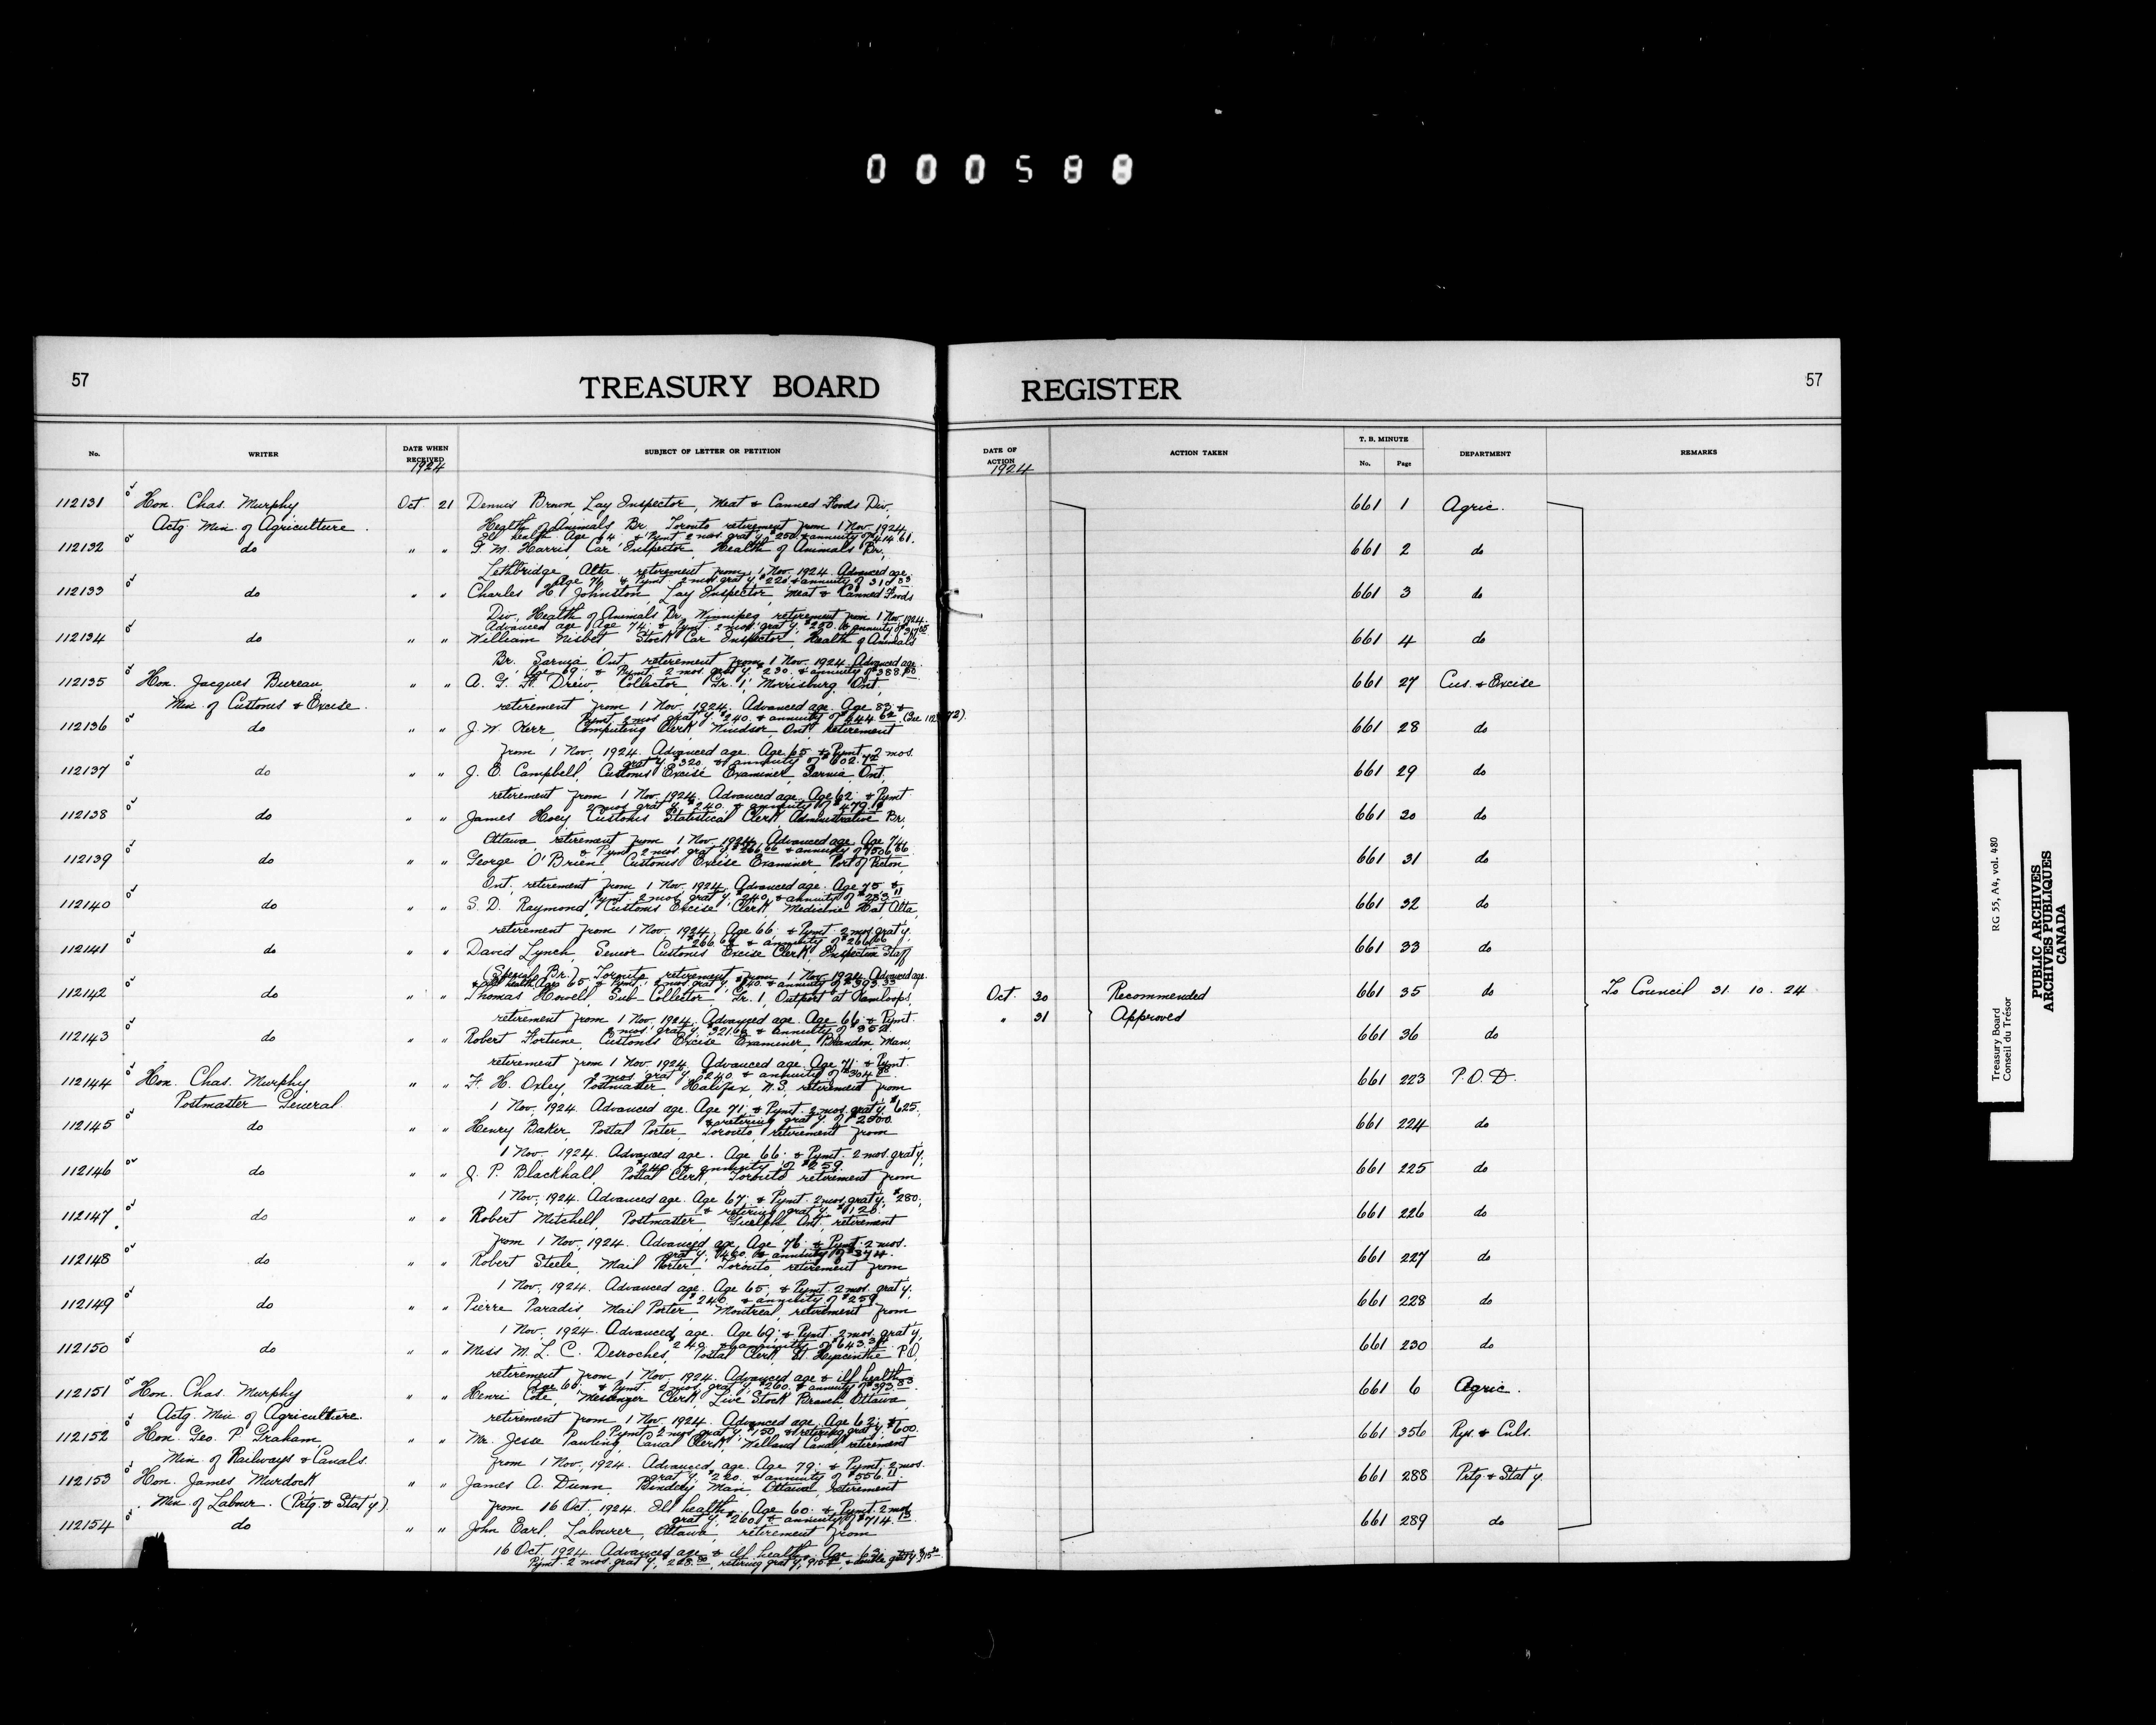 000588
57
TREASURY BOARD
REGISTER
57
No.
WRITER
DATE WHEN RECEIVED
1924
SUBJECT OF LETTER OR PETITION
DATE OF ACTION
1924
ACTION TAKEN
T. B. MINUTE
No.
Page
DEPARTMENT
REMARKS
112131 Hon. Chas. Murphy Oct 21 Dennis Brown, Lay Inspector, Meat & Canned Foods Div, 661 1 Agric.
Actg. Min. of Agriculture. Health of Animals Br. Toronto retirement from 1 Nov. 1924.
Ill health. Age 64. & Pymt 2 mos. grat'y $250. & annuity of $414.61.
112132 do " " G. M. Harris, Car Inspector, Health of Animals Br, 661 2 do
Lethbridge, Alta. retirement from 1 Nov. 1924. Advanced age.
Age 76 & Pymt. 2 mos. grat'y $220 & annuity of
112133 do " " Charles H. Johnston, Lay Inspector, Meat & Canned Foods 661 3 do
Div., Health of Animals Br, Winnipeg, retirement from 1 Nov. 1924.
Advanced age. Age 74; & Pymt. 2 mos. grat'y, $220. & annuity of
112134 do " " William Nisbet Stock Car Inspector, Health of Animals 661 4 do
Br. Sarnia Ont. retirement from 1 Nov. 1924. Advanced age.
Age 69; & Pymt. 2 mos. grat'y. $230. & annuity of $388.
112135 Hon. Jacques Bureau " " A. G. H. Drew, Collector, Gr. 1, Morrisburg Ont, 661 27 Cus. & Excise
Min. of Customs & Excise. retirement from 1 Nov. 1924. Advanced age. Age 83 &
Pymt. 2 mos. grat'y. $240. & annuity of $644.62.
112136 do " " J. W. Kerr, Computing Clerk, Windsor, Ont. retirement 661 28 do
from 1 Nov. 1924. Advanced age. Age 65 & Pymt 2 mos.
grat'y. $320. & annuity of $602.72
112137 do " " J. E. Campbell, Customs Excise Examiner, Sarnia, Ont, 661 29 do
retirement from 1 Nov. 1924. Advanced age. Age 62. & Pymt
2 mos grat'y. $240. & annuity of
112138 do " " James Hoey, Customs Statistical Clerk Administrative Br, 661 30 do
Ottawa, retirement from 1 Nov. 1924. Advanced age. Age 74,
& Pymt. 2 mos. grat'y $266.66 & annuity of $506.66
112139 do " " George O'Brien, Customs Excise Examiner, Port of Picton, 661 31 do
Ont, retirement from 1 Nov. 1924. Advanced age. Age 75 &
Pymt. 2 mos. grat'y. $240. & annuity of
112140 do " " S. D. Raymond, Customs Excise Clerk, Medicine Hat, Alta, 661 32 do
retirement from 1 Nov. 1924. Age 66. & Pymt. 2 mos. grat'y.
$266.66 & annuity of $266.66
112141 do " " David Lynch, Senior Customs Excise Clerk, Inspection Staff 661 33 do
(Special Br.) Toronto retirement from 1 Nov. 1924. Advanced age.
& ill health. Age 65. & Pymt. 2 mos. grat'y. & annuity of
112142 do " " Thomas Howell, Sub-Collector, Gr. 1, Outport at Kamloops, Oct. 30 Recommended 661 35 do To Council 31. 10. 24
retirement from 1 Nov. 1924. Advanced age. Age 66. & Pymt. " 31 Approved
2 mos. grat'y. $321.66 & annuity of
112143 do " " Robert Fortune, Customs Excise Examiner, Brandon, Man, 661 36 do
retirement from 1 Nov. 1924. Advanced age. Age 71; & Pymt.
2 mos. grat'y. $240. & annuity of $304.88
112144 Hon. Chas. Murphy " " F. H. Oxley, Postmaster, Halifax, N.S, retirement from 661 223 P.O.D.
Postmaster General. 1 Nov. 1924. Advanced age. Age 71; & Pymt. 2 mos. grat'y. $625.
& retiring grat'y. of $2500.
112145 do " " Henry Baker, Postal Porter, Toronto, retirement from 661 224 do
1 Nov. 1924. Advanced age. Age 66; & Pymt. 2 mos. grat'y,
& annuity of $259.
112146 do " " J. P. Blackhall, Postal Clerk, Toronto retirement from 661 225 do
1 Nov. 1924. Advanced age. Age 67; & Pymt. 2 mos. grat'y. $280;
& retiring grat'y. $1120.
112147 do " " Robert Mitchell, Postmaster, Guelph Ont, retirement 661 226 do
from 1 Nov. 1924. Advanced age. Age 76; & Pymt. 2 mos.
grat'y. $460. & annuity of $374.
112148 do " " Robert Steele, Mail Porter, Toronto, retirement from 661 227 do
1 Nov. 1924. Advanced age. Age 65; & Pymt. 2 mos. grat'y.
$240. & annuity of $259
112149 do " " Pierre Paradis, Mail Porter, Montreal, retirement from 661 228 do
1 Nov. 1924. Advanced age. Age 69; & Pymt. 2 mos. grat'y,
$240. & annuity of $643.
112150 do " " Miss M. L. C. Desroches, Postal Clerk, St. Hyacinthe P.O, 661 230 do
retirement from 1 Nov. 1924. Advanced age & ill health.
Age 60; & Pymt. 2 mos. grat'y. $260. & annuity of $393.83
112151 Hon. Chas. Murphy " " Henri Cote, Messenger Clerk, Live Stock Branch, Ottawa, 661 6 Agric.
Actg. Min. of Agriculture. retirement from 1 Nov. 1924. Advanced age. Age 63; &
Pymt. 2 mos. grat'y. $150, & retiring grat'y. $600.
112152 Hon. Geo. P. Graham " " Mr. Jesse Pawling, Canal Clerk, Welland Canal, retirement 661 356 Rys. & Cnls.
Min. of Railways & Canals. from 1 Nov. 1924. Advanced age. Age 79; & Pymt. 2 mos.
grat'y. $220. & annuity of $556.11
112153 Hon. James Murdock " " James A. Dunn, Bindery Man, Ottawa, retirement 661 288 Prtg. & Stat'y.
Min. of Labour. (Prtg. & Stat'y). from 16 Oct. 1924. Ill health. Age 60. & Pymt. 2 mos
grat'y. $260. & annuity of $714.13
112154 do " " John Earl, Labourer, Ottawa, retirement from 661 289 do
16 Oct. 1924. Advanced age & ill health. Age 63;
Pymt. 2 mos. grat'y, retiring grat'y,
Treasury Board RG 55, A4, vol. 480
Conseil du Trésor
PUBLIC ARCHIVES
ARCHIVES PUBLIQUES
CANADA